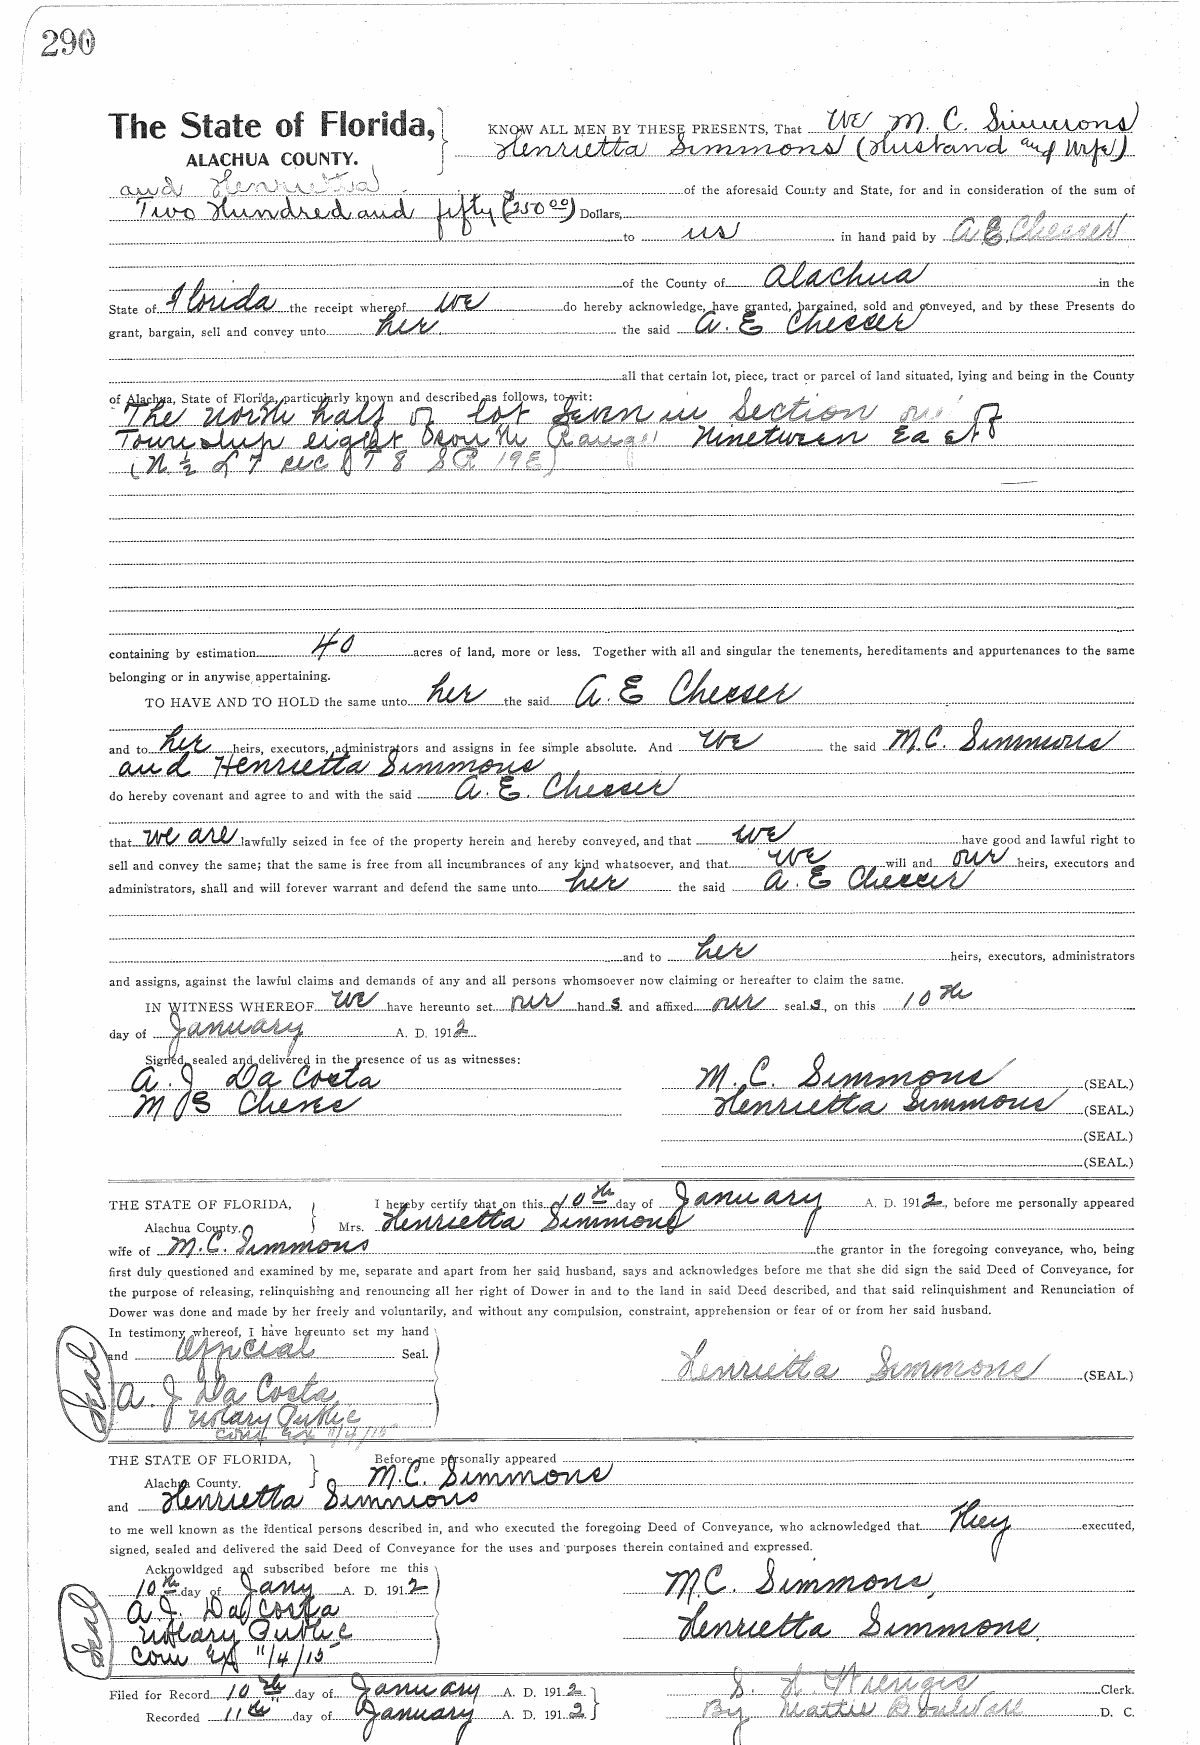 290
The State of Florida,
ALACHUA COUNTY.
KNOW ALL MEN BY THESE PRESENTS, That We M. C. Simmons
Henrietta Simmons (Husband and Wife)
and Henrietta
of the aforesaid County and State, for and in consideration of the sum of
Two Hundred and fifty ($250 00) Dollars,
to us in hand paid by A E Chesser
of the County of Alachua in the
State of Florida the receipt whereof we do hereby acknowledge, have granted, bargained, sold and conveyed, and by these Presents do
grant, bargain, sell and convey unto her the said A. E Chesser
all that certain lot, piece, tract or parcel of land situated, lying and being in the County
of Alachua, State of Florida, particularly known and described as follows, to wit:
The north half of lot Seven in Section
Township eight South Range Nineteen East
(N. ½ of 7 sec T 8 S R 19E)
containing by estimation 40 acres of land, more or less. Together with all and singular the tenements, hereditaments and appurtenances to the same
belonging or in anywise appertaining.
TO HAVE AND TO HOLD the same unto her the said A. E Chesser
and to her heirs, executors, administrators and assigns in fee simple absolute. And we the said M.C. Simmons
and Henrietta Simmons
do hereby covenant and agree to and with the said A. E. Chesser
that we are lawfully seized in fee of the property herein and hereby conveyed, and that we have good and lawful right to
sell and convey the same; that the same is free from all incumbrances of any kind whatsoever, and that we will and our heirs, executors and
administrators, shall and will forever warrant and defend the same unto her the said A. E Chesser
and to her heirs, executors, administrators
and assigns, against the lawful claims and demands of any and all persons whomsoever now claiming or hereafter to claim the same.
IN WITNESS WHEREOF we have hereunto set our hand s and affixed our seal s, on this 10th
day of January A. D. 1912
Signed, sealed and delivered in the presence of us as witnesses:
A. J Da Costa
M. C. Simmons (SEAL.)
Henrietta Simmons (SEAL.)
(SEAL.)
(SEAL.)
THE STATE OF FLORIDA,
Alachua County.
I hereby certify that on this 10th day of January A. D. 1912, before me personally appeared
Mrs. Henrietta Simmons
wife of M.C. Simmons the grantor in the foregoing conveyance, who, being
first duly questioned and examined by me, separate and apart from her said husband, says and acknowledges before me that she did sign the said Deed of Conveyance, for
the purpose of releasing, relinquishing and renouncing all her right of Dower in and to the land in said Deed described, and that said relinquishment and Renunciation of
Dower was done and made by her freely and voluntarily, and without any compulsion, constraint, apprehension or fear of or from her said husband.
In testimony whereof, I have hereunto set my hand
and Official Seal.
Seal
Henrietta Simmons (SEAL.)
A. J Da Costa
Notary Public
Com Ex 11/4/15
THE STATE OF FLORIDA,
Alachua County.
Before me personally appeared
M.C. Simmons
and Henrietta Simmons
to me well known as the identical persons described in, and who executed the foregoing Deed of Conveyance, who acknowledged that they executed,
signed, sealed and delivered the said Deed of Conveyance for the uses and purposes therein contained and expressed.
Acknowldged and subscribed before me this
10th day of Jany A. D. 1912
M.C. Simmons,
A. J. Da Costa
Seal
Notary Public
Henrietta Simmons.
Com Ex 11/4/15
Filed for Record 10th day of January A. D. 1912
Clerk.
Recorded 11th day of January A. D. 1912
By Mattie Boulware D. C.